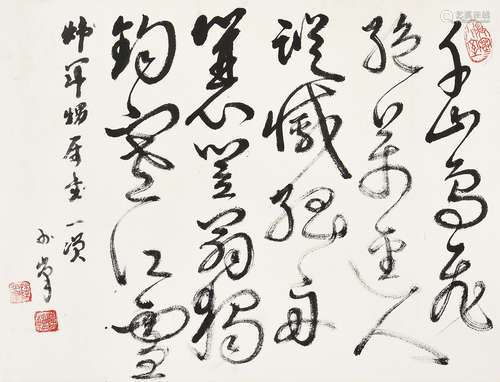 千山鳥飛
絶萬徑人
蹤滅孤舟
蓑笠翁獨
釣寒江雪
軍甥